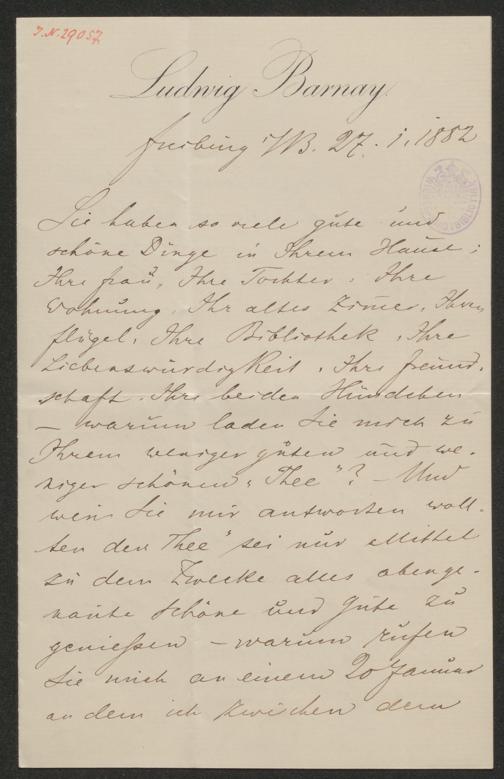 J.N. 29057
Ludwig Barnay
Freiburg i/B. 27. 1. 1882
Sie haben so viele gute und
schöne Dinge in Ihrem Hause;
Ihre Frau, Ihre Tochter, Ihre
Wohnung, Ihr altes Zimer, Ihren
Flügel, Ihre Bibliothek, Ihre
Liebenswürdigkeit, Ihre Freund-
schaft, Ihre beiden Hündchen
— warum laden Sie mich zu
Ihrem weniger guten und we-
niger schönen „Thee"? — Und
wen Sie mir antworten woll-
ten der „Thee" sei nur Mittel
zu dem Zwecke alles obenge-
nante Schöne und Gute zu
genießen — warum rufen
Sie mich an einem 20 Januar
an dem ich zwischen dem